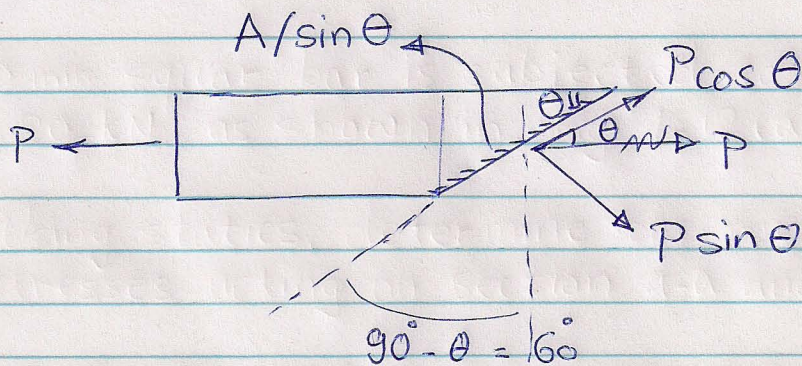 A/sinθ
P cos θ
θ
θ
P
P
P sin θ
90° - θ = 60°